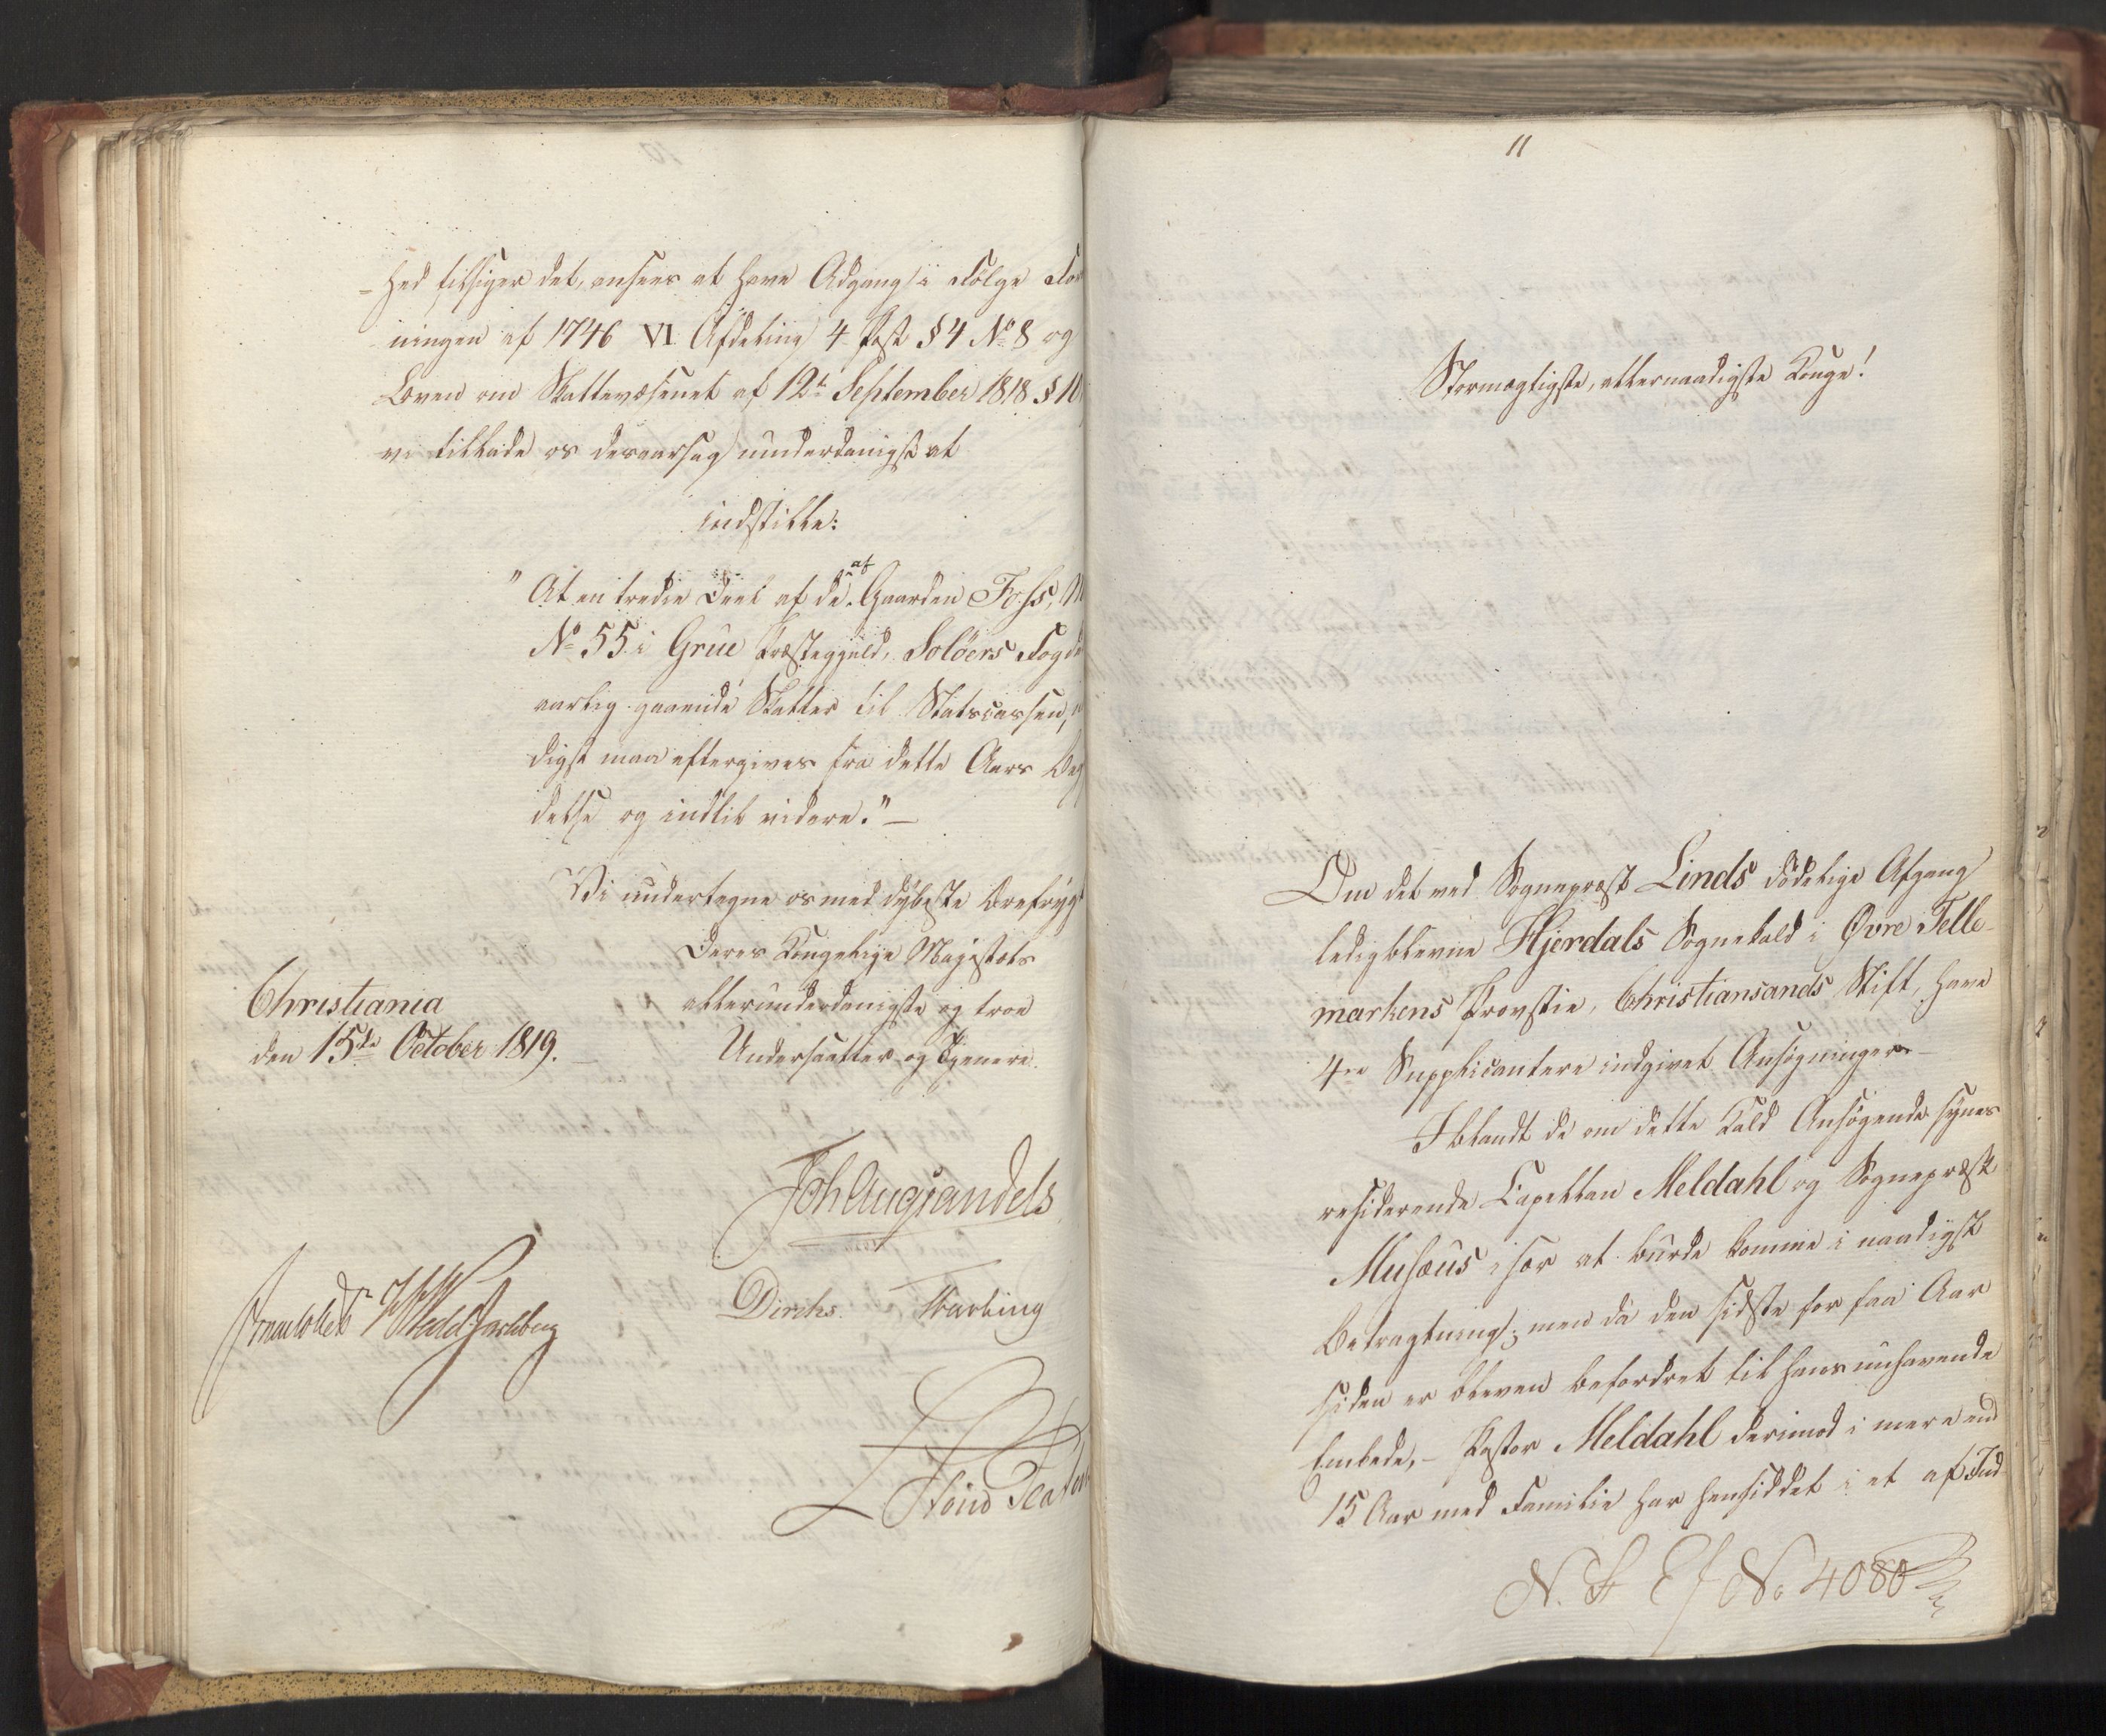 hed tilsiger det, ansees at have Adgang i Følge For
ningen af 1746 VI Afdeling 4 Post § 4 No 8 og
Loven om Skattevæsenet af 12te September 1818 § 10
vi tillade os desaarsag underdanigst at
indstille:
"At en tredie Deel af de af Gaarden Foss, M
No 55 i Grue Præstegjeld, Soløers Fogde
aarlig gaaende Skatter til Statscassen,
digst maa eftergives fra dette Aars Beg
delse og indtil videre."—
Vi undertegne os med dybeste Ærefrygt
Deres Kongelige Majestæts
allerunderdanigste og troe
Undersaatter og Tjenere.
Christiania
den 15de October 1819.
Joh Aug Sandels
Diriks. Harbing
11
Stormægtigste, allernaadigste Konge!
Om det ved Sognepræst Linds dödelige Afgang
ledigblevne Hjerdals Sognekald i Øvre Telle-
markens Provstie, Christiansands Stift, have
4re Supplicantere indgivet Ansøgninger.—
Iblandt de om dette Kald Ansøgende synes
residerende Capellan Meldahl og Sognepræst
Musæus især at burde komme i naadigst
Betragtning; men da den sidste for faa Aar
siden er bleven befordret til hans nuhavende
Embede, - Pastor Meldahl derimod i mere end
15 Aar med Familie har hensiddet i et af Ind-
N. S. E J No 4080